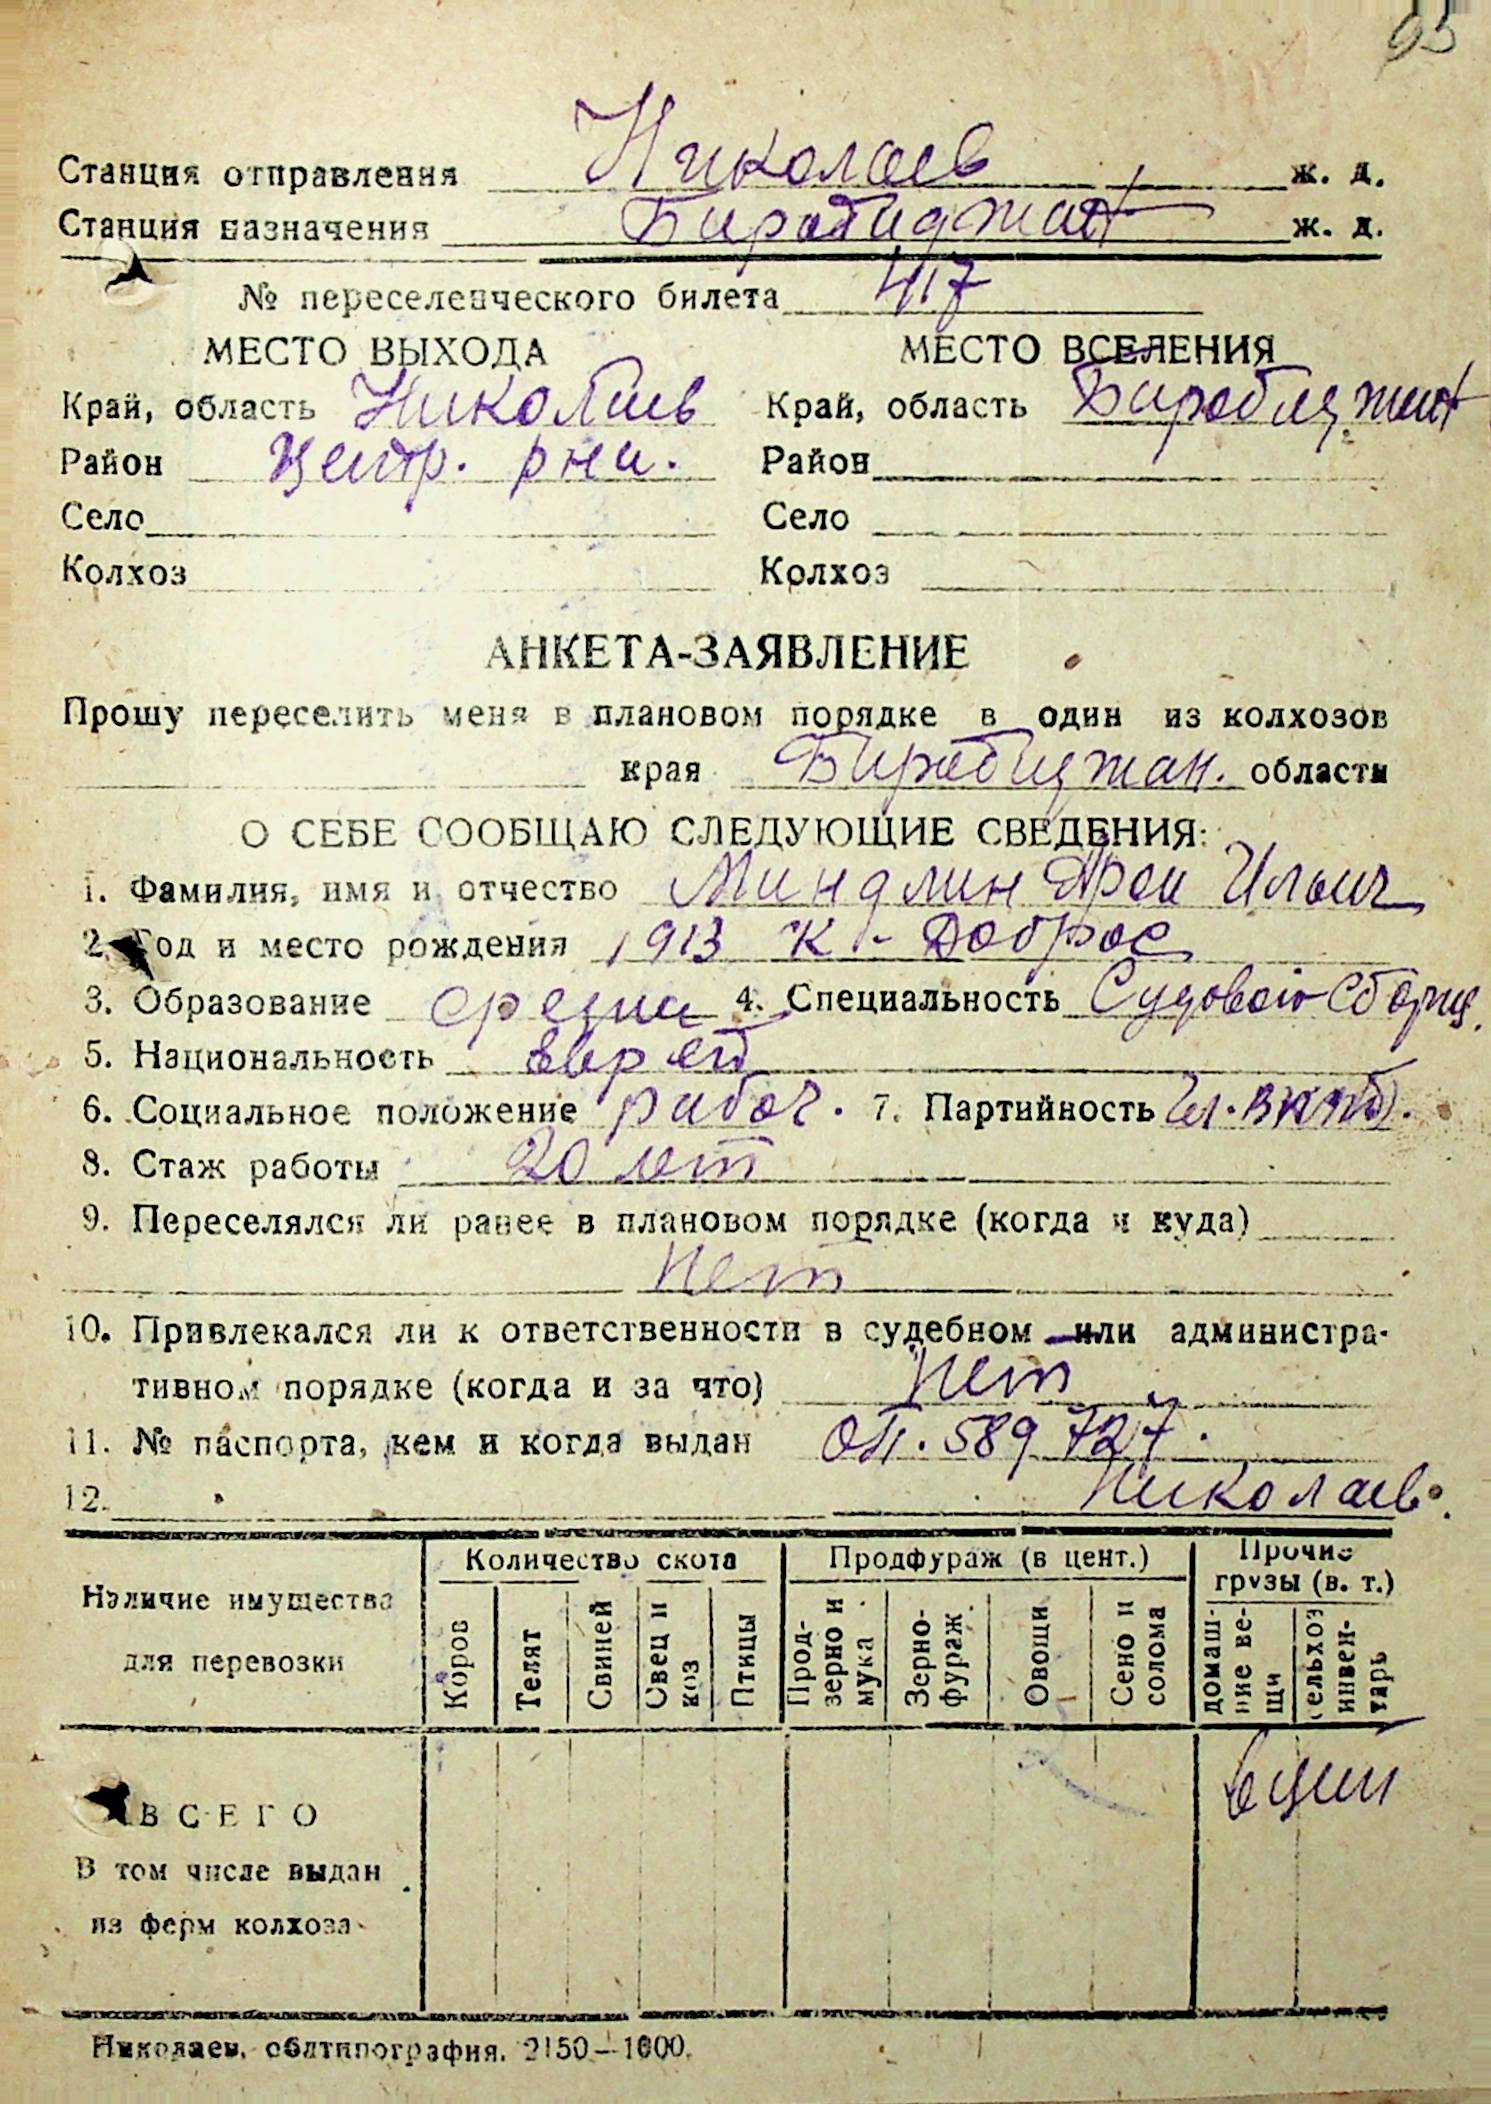 95
Станция отправления Николаев ж. д.
Станция назначения Биробиджан ж. д.
№ переселенческого билета 417
МЕСТО ВЫХОДА МЕСТО ВСЕЛЕНИЯ
Край, область Николаев Край, область Биробиджан
Район Центр. Район
Село Село
Колхоз Колхоз
АНКЕТА-ЗАЯВЛЕНИЕ
Прошу переселить меня в плановом порядке в один из колхозов
края Биробиджан. области
О СЕБЕ СООБЩАЮ СЛЕДУЮЩИЕ СВЕДЕНИЯ:
1. Фамилия, имя и отчество Миндлин Арон Ильич
2. Год и место рождения 1913 К-Доброе
3. Образование средн 4. Специальность Судовой сборщ.
5. Национальность еврей
6. Социальное положение рабоч. 7. Партийность чл. ВКПб.
8. Стаж работы 20 лет
9. Переселялся ли ранее в плановом порядке (когда и куда)
нет
10. Привлекался ли к ответственности в судебном или администра-
тивном порядке (когда и за что) нет
11. № паспорта, кем и когда выдан 589727.
12. Николаев.
Наличие имущества для перевозки
Количество скота Продфураж (в цент.) Прочие грузы (в. т.)
Коров Телят Свиней Овец и коз Птицы Прод-зерно и мука Зерно-фураж. Овощи Сено и солома домаш-ние ве-щи сельхоз инвен-тарь
ВСЕГО
В том числе выдан
из ферм колхоза
Николаев, облтипография. 2150—1000.